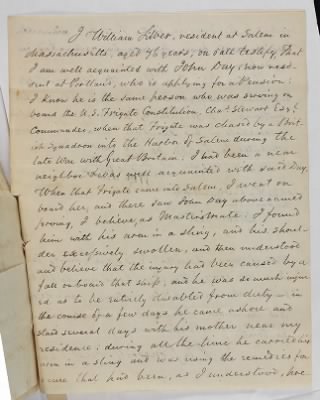 I William Silver, resident at Salem in
Massachusetts, aged 76 years, on oath testify, that
I am well acquainted with John Day, now resi-
dent at Portland, who is applying for a Pension:
I know he is the same person who was serving on
board the U.S. Frigate Constitution, Chas Stewart Esqr
Commander, when that Frigate was chased by a Brit-
ish Squadron into the Harbor of Salem during the
late War with Great Britain. I had been a near
neighbor & was well acquainted with said Day.
When that Frigate came into Salem, I went on
board her, and there saw John Day above named
serving, I believe, as Master's mate: I found
him with his arm in a sling, and his shoul-
der excessively swollen, and then understood
and believe that the injury had been caused by a
fall on board that ship: and he was so much injur-
ed as to be entirely disabled from duty — in
the course of a few days he came ashore and
staid several days with his mother near my
residence: during all the time he carried his
arm in a sling and was using the remedies for
a cure that had been, as I understood, pre